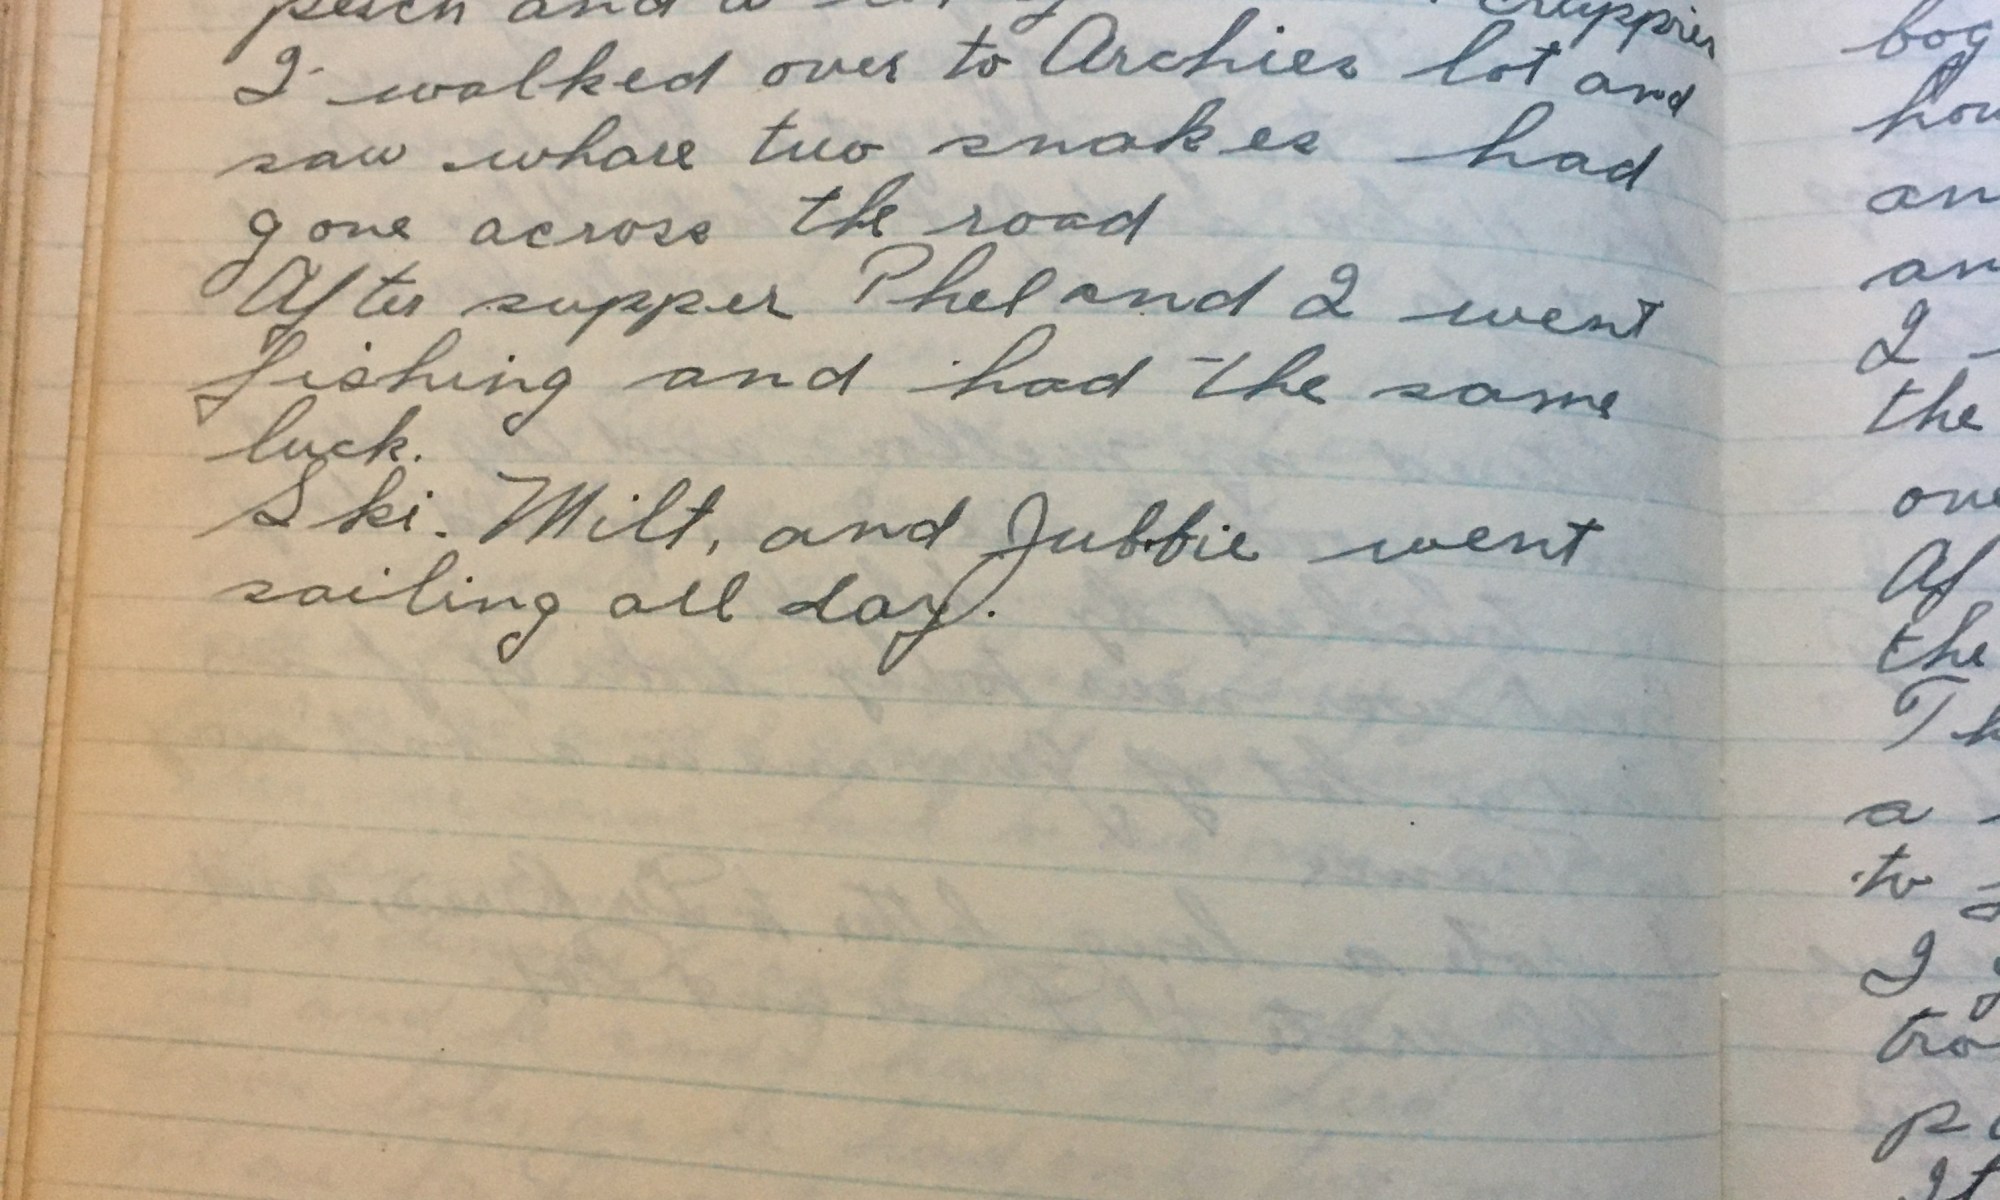 perch and a
crappies
I walked over to Archies lot and
saw whare two snakes had
gone across the road
After supper Phel and I went
fishing and had the same
luck.
Ski. Milt, and Jubbie went
sailing all day.
hou
an
an
I
the
one
Af
the
Th
a
to
I
tra